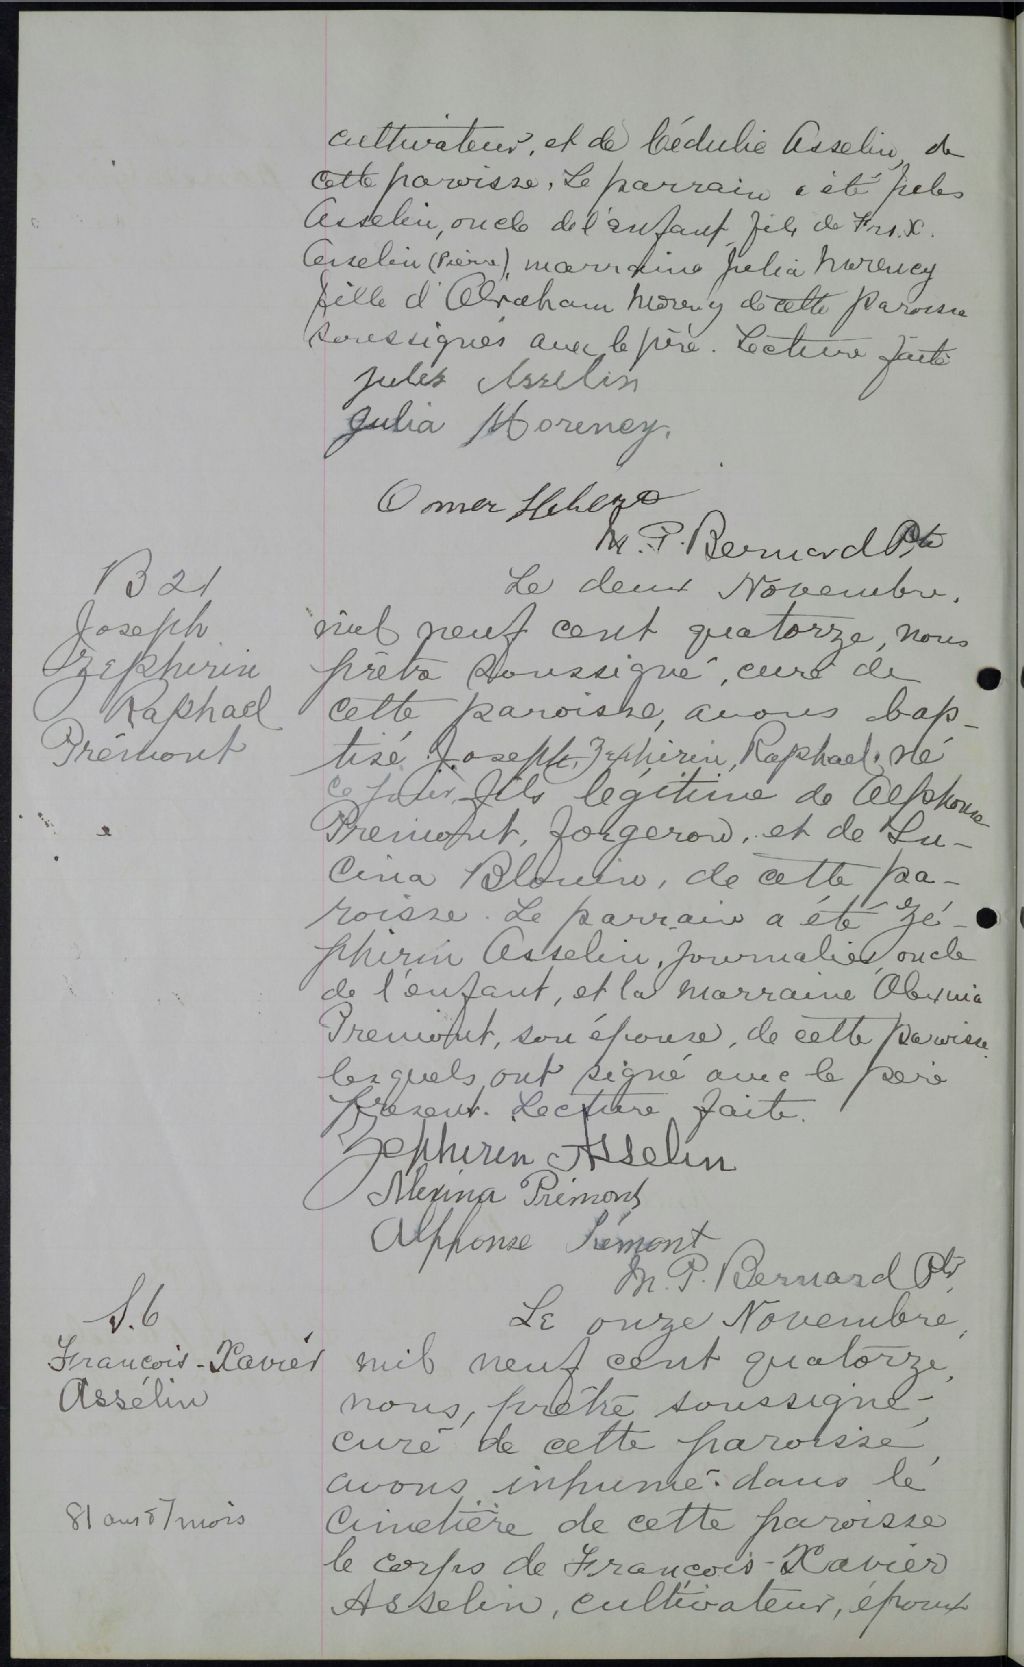 cultivateur, et de Cédulie Asselin, de
cette paroisse. Le parrain a été Jules
Asselin, oncle de l'enfant, fils de Frs. X.
Asselin (Pierre), marraine Julia Morency
fille d'Abraham Morency de cette paroisse
soussignés avec le père. Lecture faite
Jules Asselin
Julia Morency.
Omer
M. P. Bernard Ptr
B 21
Joseph
Zephirin
Raphael
Prémont
Le deux Novembre,
mil neuf cent quatorze, nous
prêtre soussigné, curé de
cette paroisse, avons bap-
tisé Joseph, Zephirin, Raphael, né
ce jour, fils légitime de Alphonse
Premont, forgeron, et de Lu-
cina Blouin, de cette pa-
roisse. Le parrain a été Zé-
phirin Asselin, journalier, oncle
de l'enfant, et la marraine Alexina
Premont, son épouse, de cette paroisse
lesquels ont signé avec le père
présent. Lecture faite.
Zephirin Asselin
Alexina Prémont
Alphonse Prémont
M. P. Bernard Ptr
S. 6
François-Xavier
Assélin
81 ans & 7 mois
Le onze Novembre,
mil neuf cent quatorze,
nous, prêtre soussigné,
curé de cette paroisse,
avons inhumé dans le
cimetière de cette paroisse
le corps de François-Xavier
Asselin, cultivateur, époux